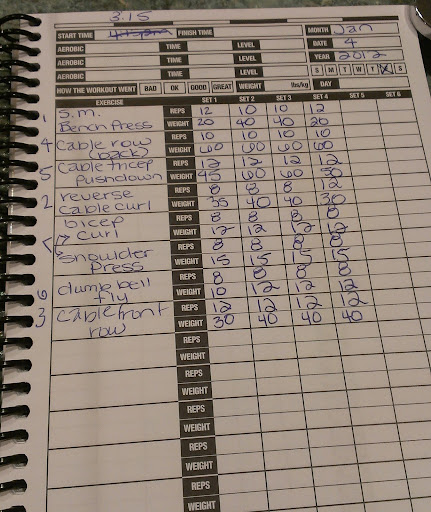 3:15
START TIME FINISH TIME MONTH Jan
AEROBIC TIME LEVEL DATE 4
AEROBIC TIME LEVEL YEAR 2012
AEROBIC TIME LEVEL S M T W T X S
HOW THE WORKOUT WENT BAD OK GOOD GREAT WEIGHT lbs/kg DAY
EXERCISE SET 1 SET 2 SET 3 SET 4 SET 5 SET 6
1 S.M. REPS 12 10 10 12
Bench Press WEIGHT 20 40 40 20
4 Cable row REPS 10 10 10 10
back WEIGHT 60 60 60 60
5 Cable tricep REPS 12 12 12 12
Pushdown WEIGHT 45 60 60 50
2 reverse REPS 8 8 8 12
Cable curl WEIGHT 35 40 40 30
bicep REPS 8 8 8 8
7 curl WEIGHT 12 12 12 12
REPS 8 8 8 8
Shoulder Press WEIGHT 15 15 15 15
6 dumbbell REPS 8 8 8 8
fly WEIGHT 10 12 12 12
3 Cable front REPS 12 12 12 12
row WEIGHT 30 40 40 40
REPS
WEIGHT
REPS
WEIGHT
REPS
WEIGHT
REPS
WEIGHT
REPS
WEIGHT
REPS
WEIGHT